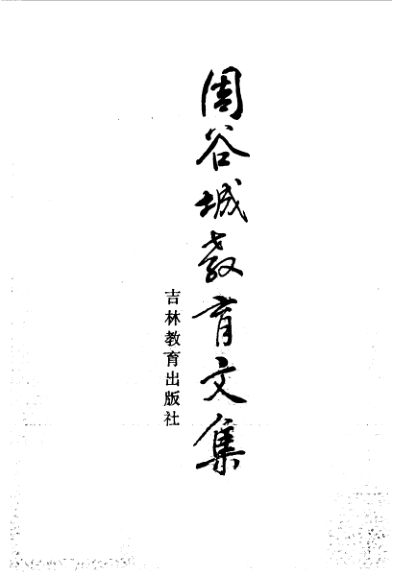 周谷城教育文集
吉林教育出版社